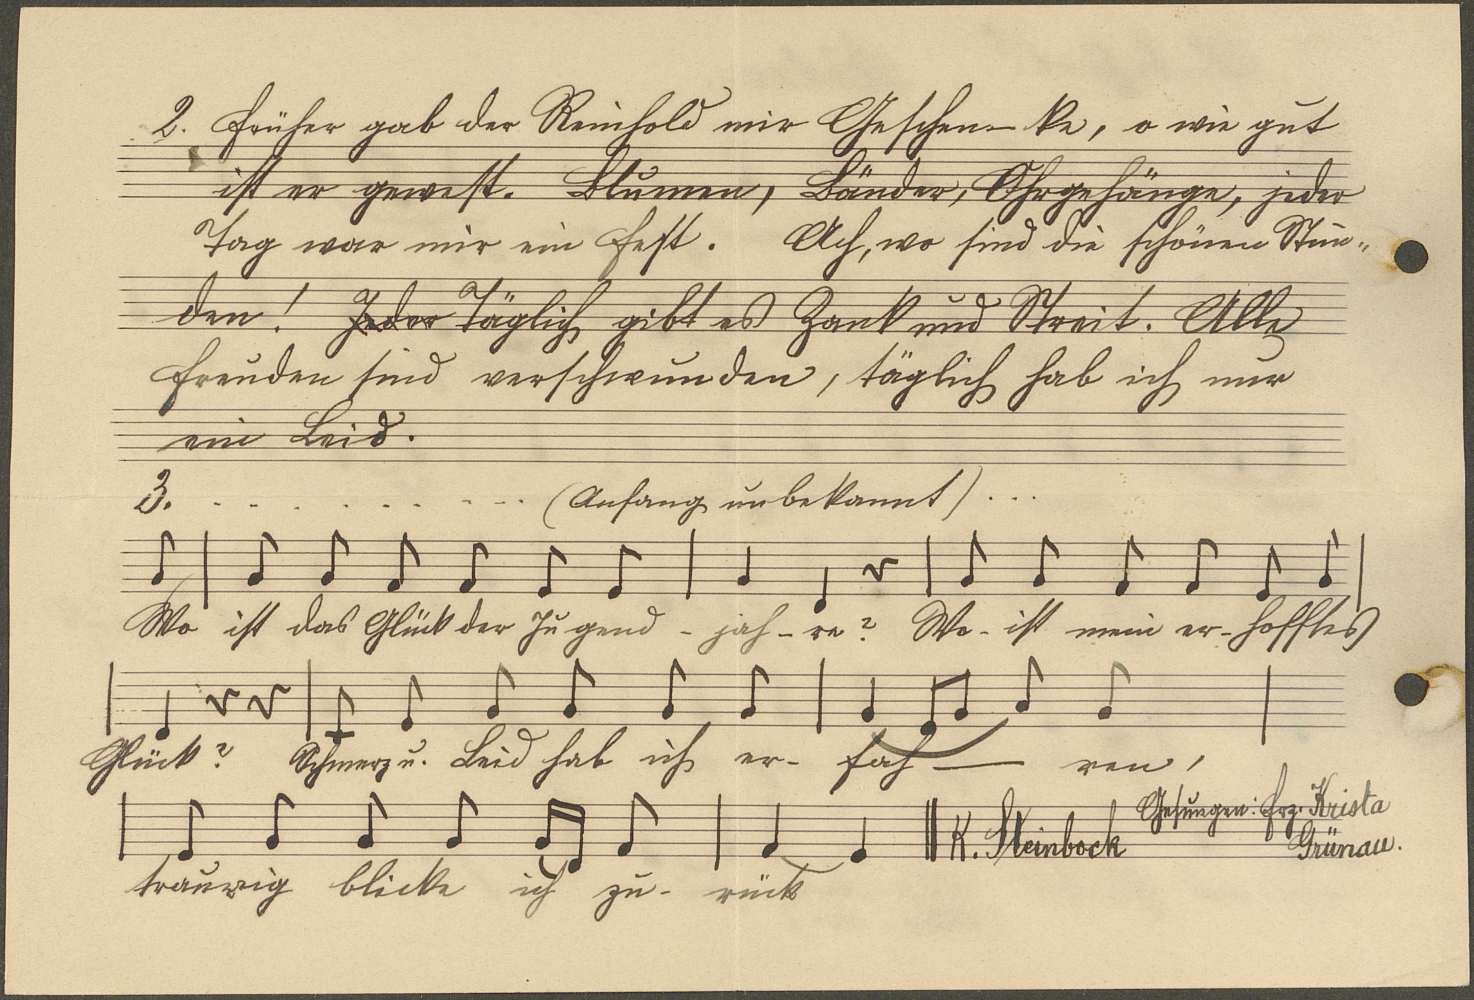 2. Früher gab der Reinhold mir Geschen- ke, o wie gut
ist er gewest. Blumen, Bänder, Ohrgehänge, jeder
Tag war mir ein Fest. Ach, wo sind die schönen Stun-
den! Jeder Täglich gibt es Zank und Streit. Alle
Freuden sind verschwunden, täglich hab ich nur
ein Leid.
3. . . . . . . . . . (Anfang unbekannt) . . .
Wo ist das Glück der Ju gend - jah - re? Wo - ist mein er - hofftes
Glück? Schmerz u. Leid hab ich er - fah — ren,
traurig blicke ich zu - rück
K. Steinbock
Gesungen: Frz. Krista
Grünau.